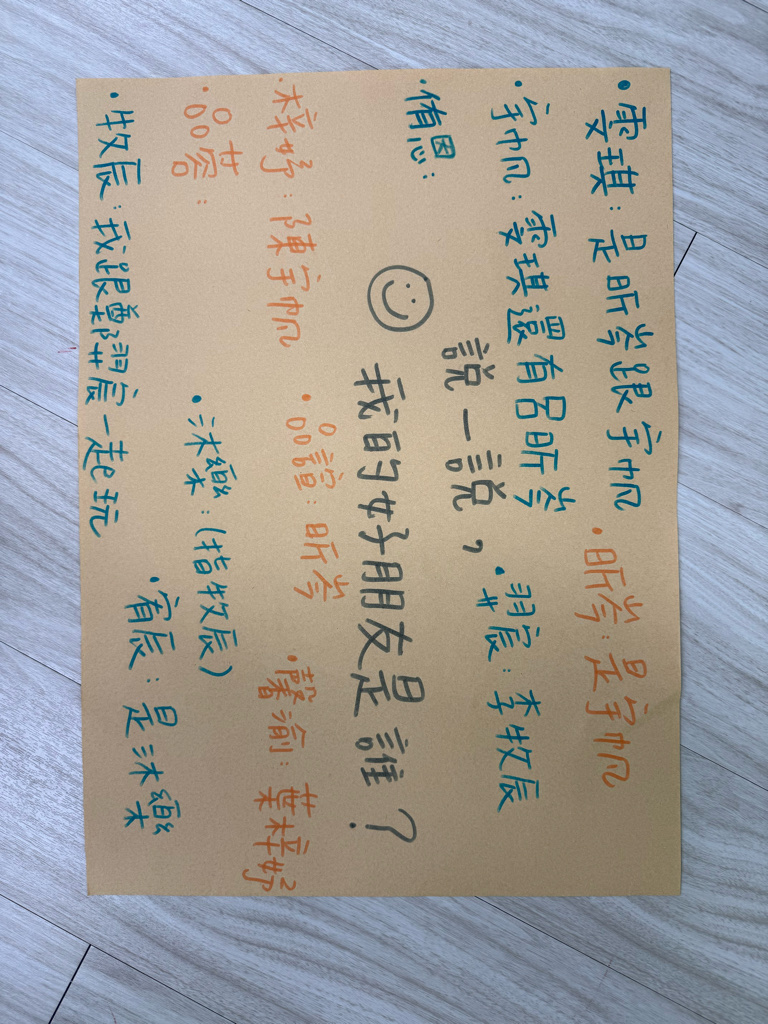 ・雯琪：是昕岑跟宇帆
・昕岑：是宇帆
・宇帆：雯琪還有呂昕岑
・羿宸：李牧辰
・侑恩：
說一說，
我的好朋友是誰？
・梓妤：陳宇帆
・品誼：昕岑
・馨渝：葉梓妤
・品蓉：
・沐樂：(指牧辰)
・牧辰：我跟鄭羿宸一起玩
・宥辰：是沐樂